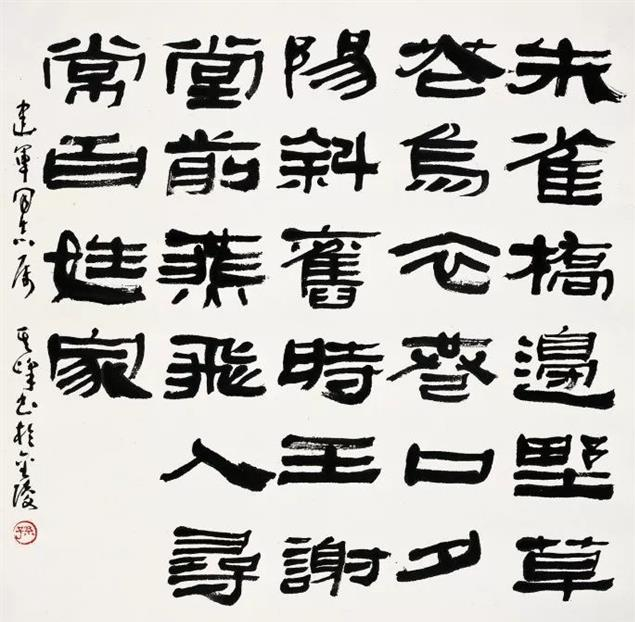 朱雀橋邊野草
花烏衣巷口夕
陽斜舊時王謝
堂前燕飛入尋
常百姓家
建軍同志属 其峰书於金陵
孫